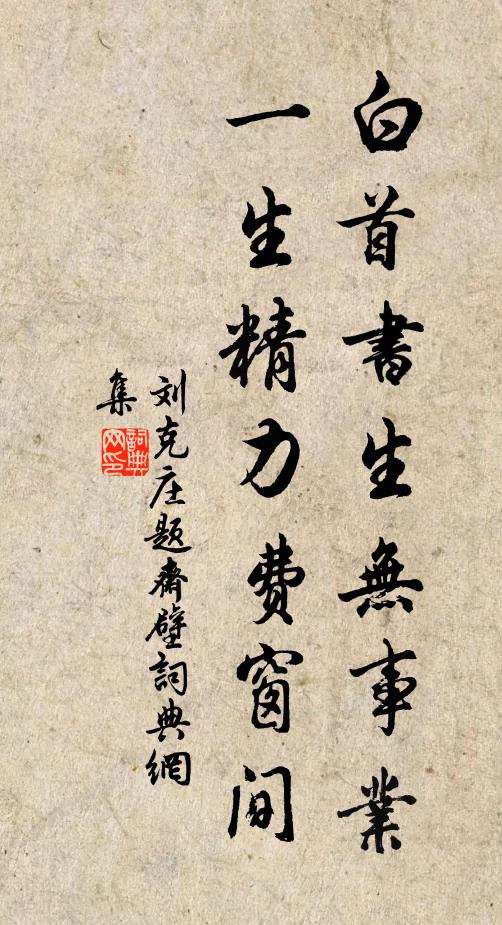 白首書生無事業
一生精力費窗间
刘克庄题齋壁詞典網
集
詞典网印